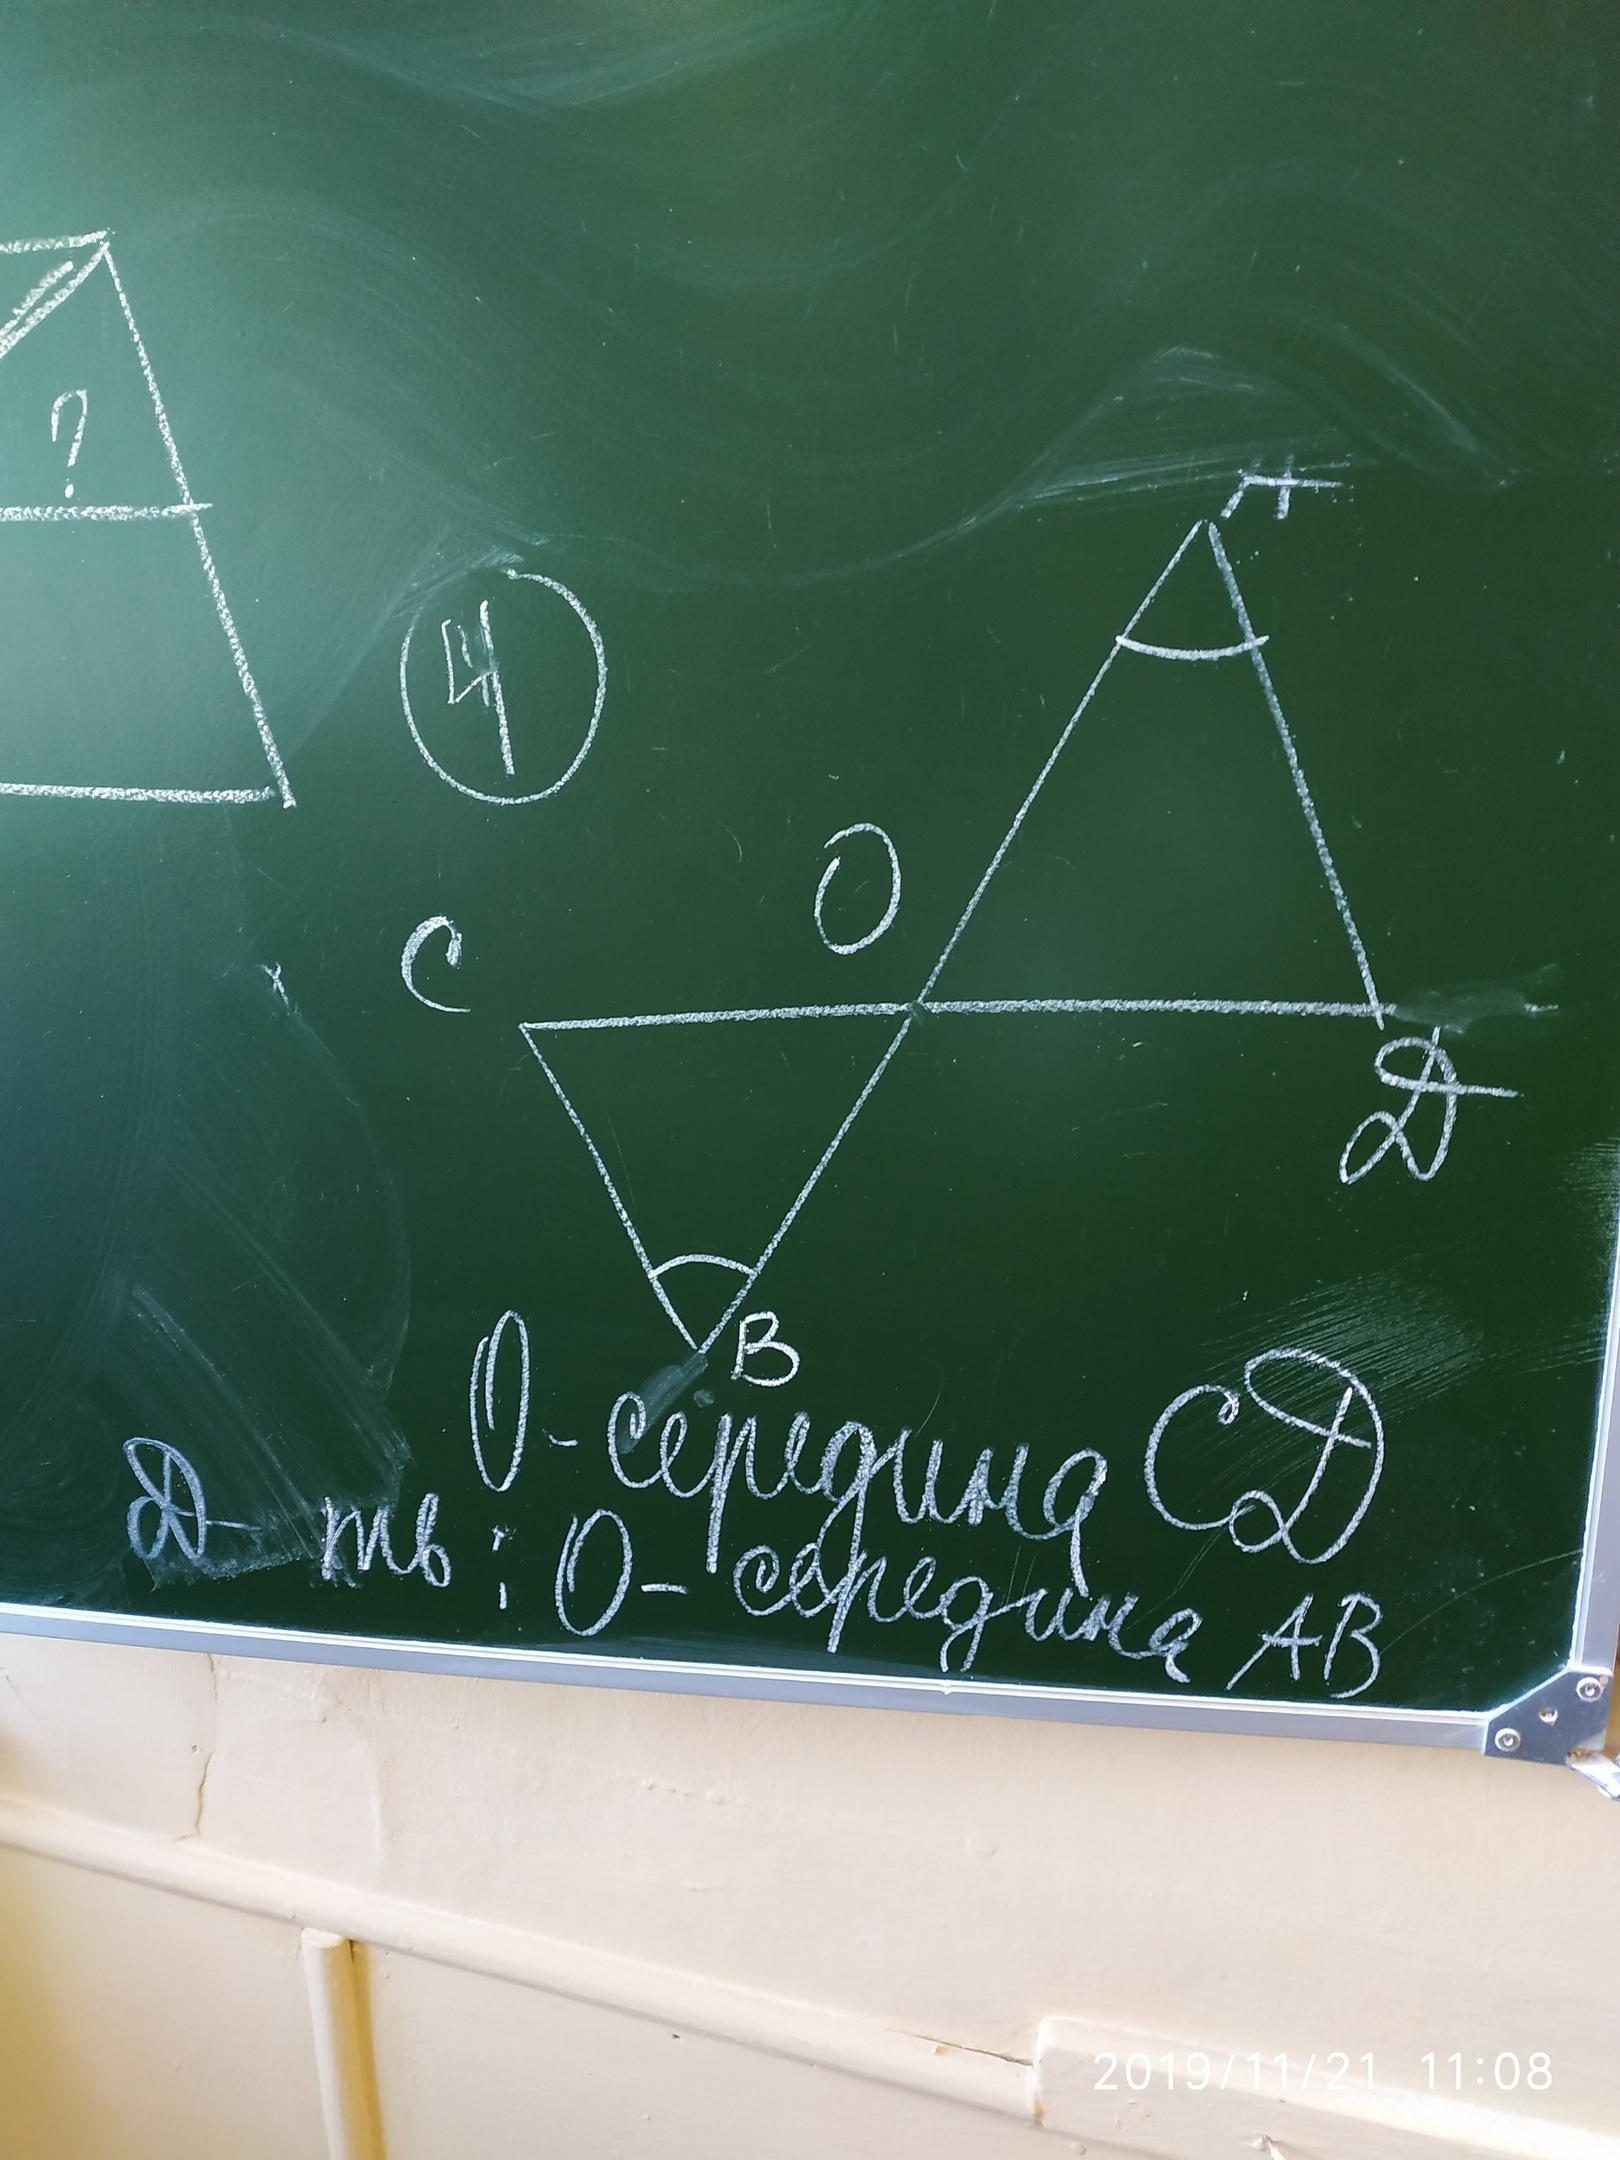 ?
4
А
О
С
Д
В
О - середина СД
Д-ть: О - середина АВ
2019/11/21 11:08